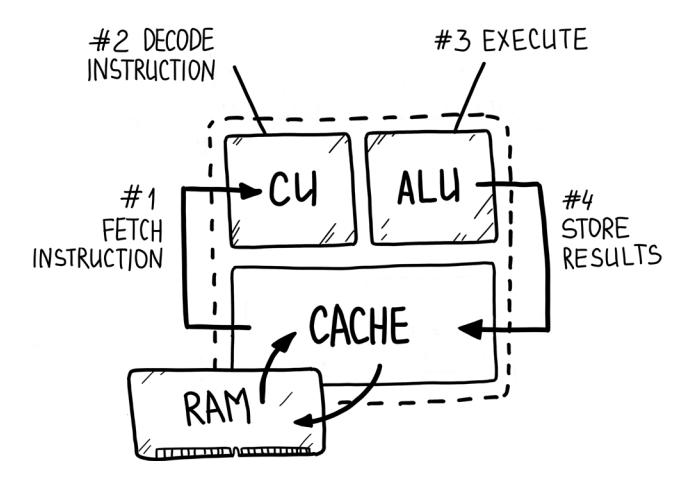 #2 DECODE
INSTRUCTION
#3 EXECUTE
CU
ALU
#1
FETCH
INSTRUCTION
#4
STORE
RESULTS
CACHE
RAM